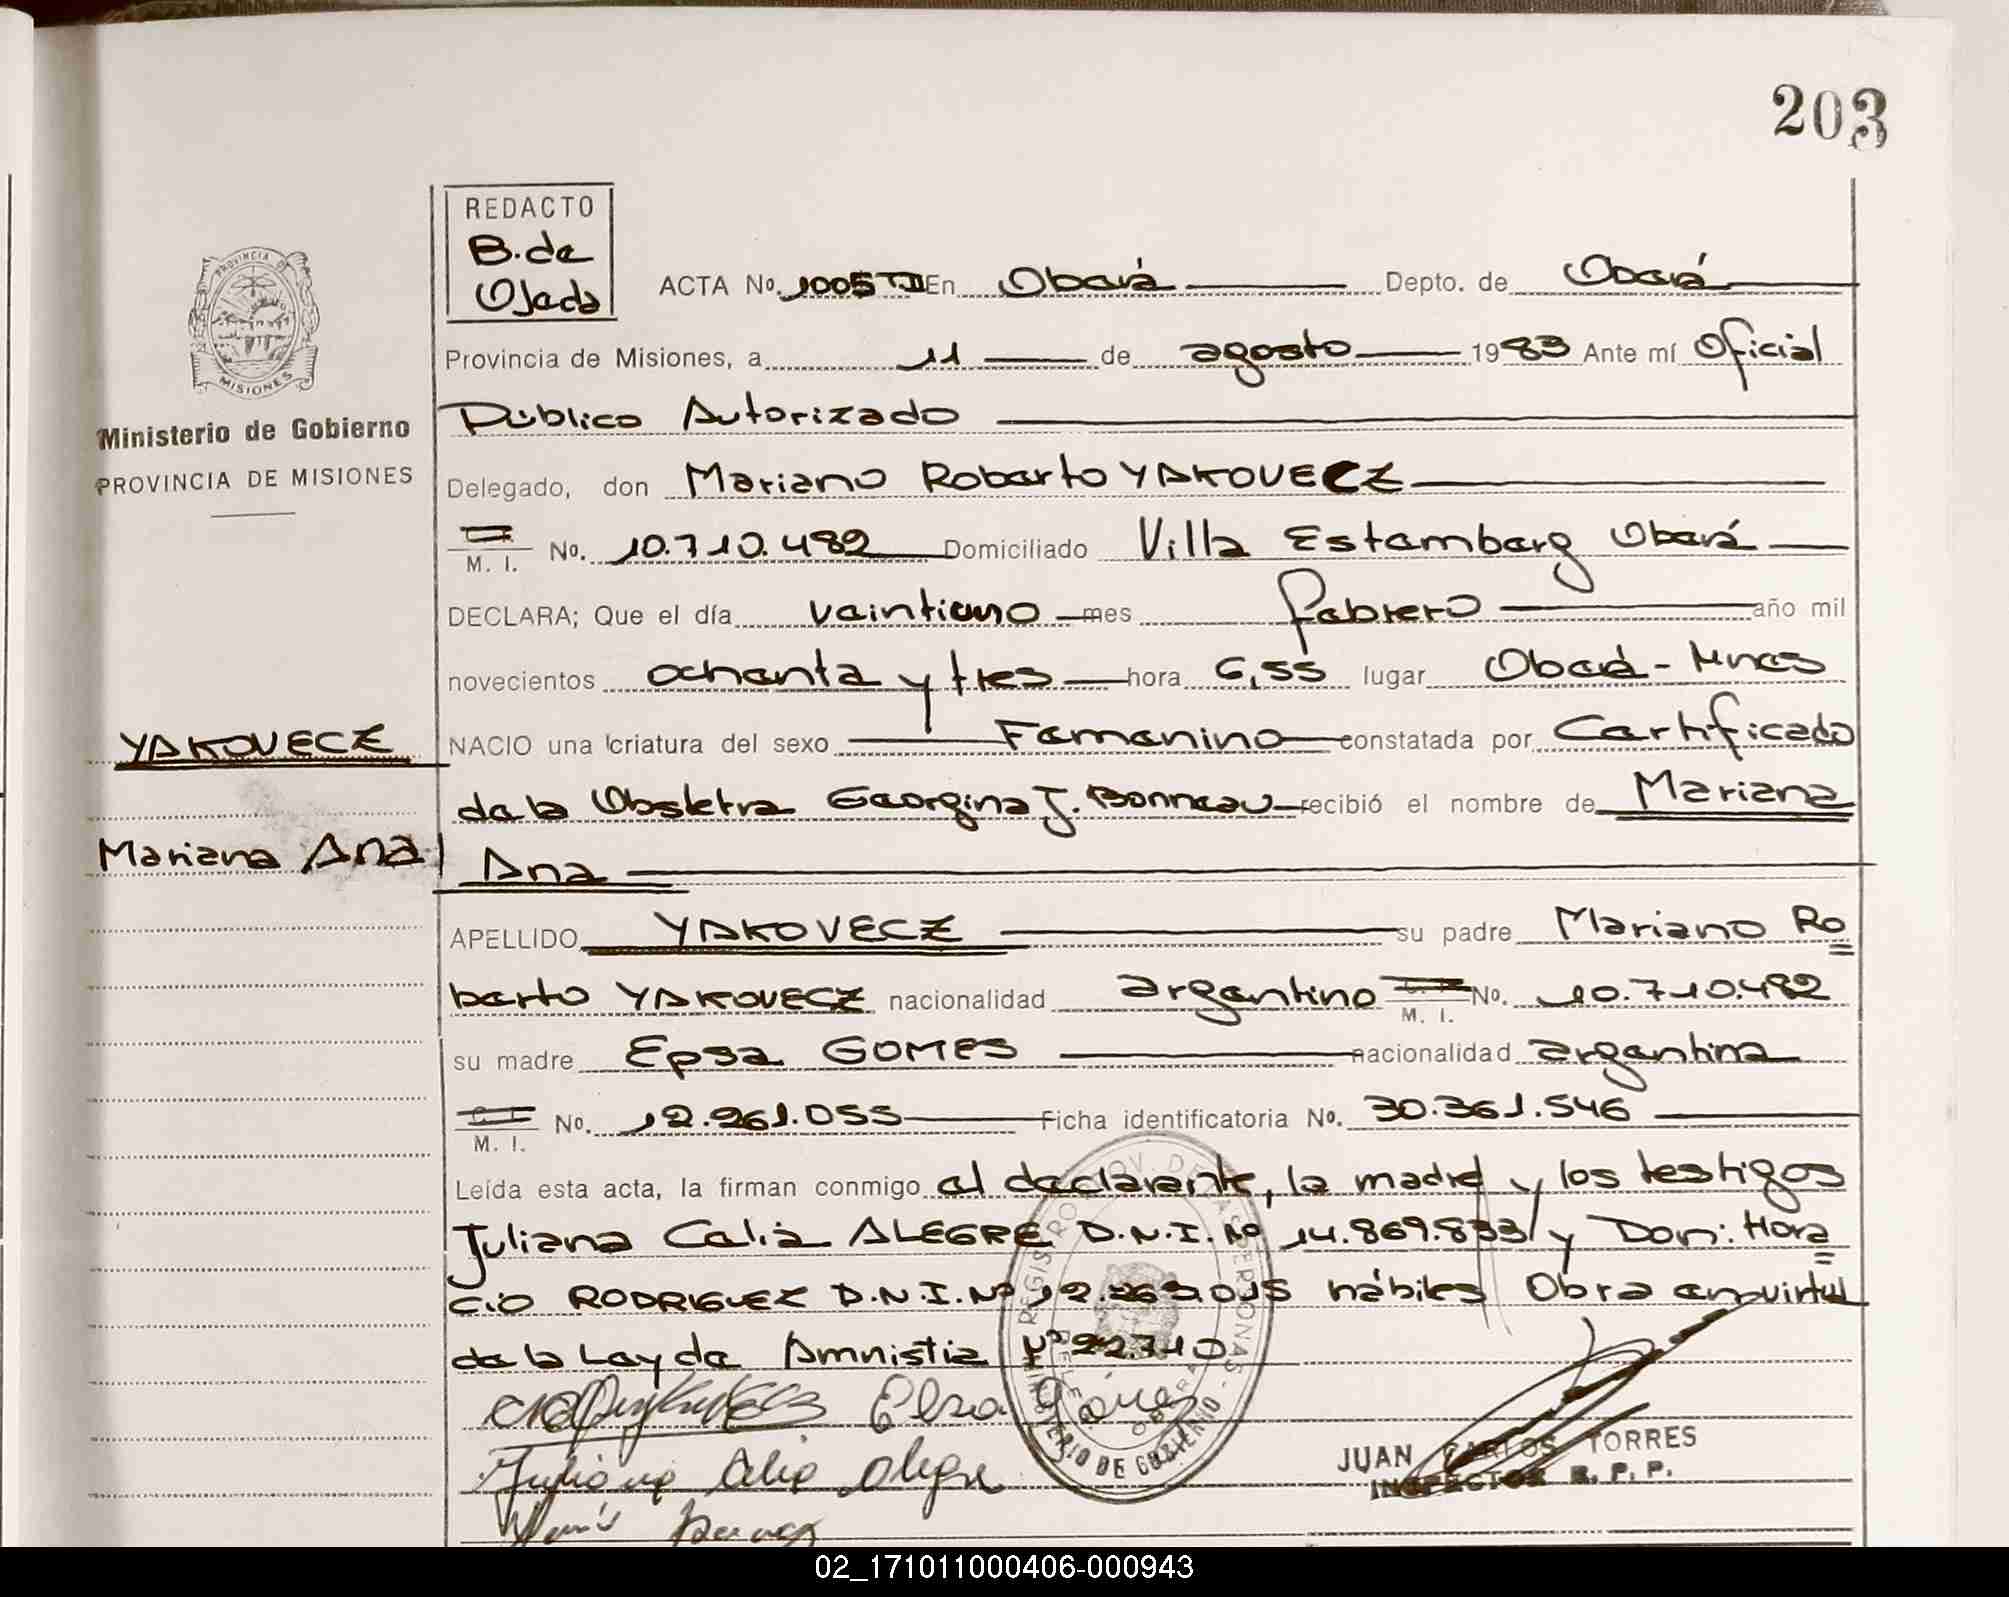 203
REDACTO
B. de
Ojeda
ACTA No. 1005 TII En Oberá Depto. de Oberá
Provincia de Misiones, a 11 de agosto 1983 Ante mí Oficial
Público Autorizado
Delegado, don Mariano Roberto YAKOVECZ
M. I. No. 10.710.482 Domiciliado Villa Estemberg Oberá
DECLARA; Que el día veintiuno mes febrero año mil
novecientos ochenta y tres hora 6,55 lugar Oberá - Mnes
NACIO una criatura del sexo Femenino constatada por Certificado
de la Obstetra Georgina J. Bonneau recibió el nombre de Mariana
Ana
APELLIDO YAKOVECZ su padre Mariano Ro
berto YAKOVECZ nacionalidad argentino M. I. No. 10.710.482
su madre Epsa GOMES nacionalidad argentina
M. I. No. 12.261.055 Ficha identificatoria No. 30.361.546
Leída esta acta, la firman conmigo el declarante, la madre y los testigos
Juliana Celia ALEGRE D.N.I. Nº 14.869.833 y Don: Hora
cio RODRIGUEZ D.N.I. Nº 12.269.015 hábiles Obra en virtud
de la Ley de Amnistia Nº 22.710
Elsa
Juliana Celia Alegre
JUAN CARLOS TORRES
INSPECTOR R. P. P.
REGISTRO PROV. DE LAS PERSONAS
MINISTERIO DE GOBIERNO
OBERA
PROVINCIA DE
MISIONES
Ministerio de Gobierno
PROVINCIA DE MISIONES
YAKOVECZ
Mariana Ana
02_171011000406-000943